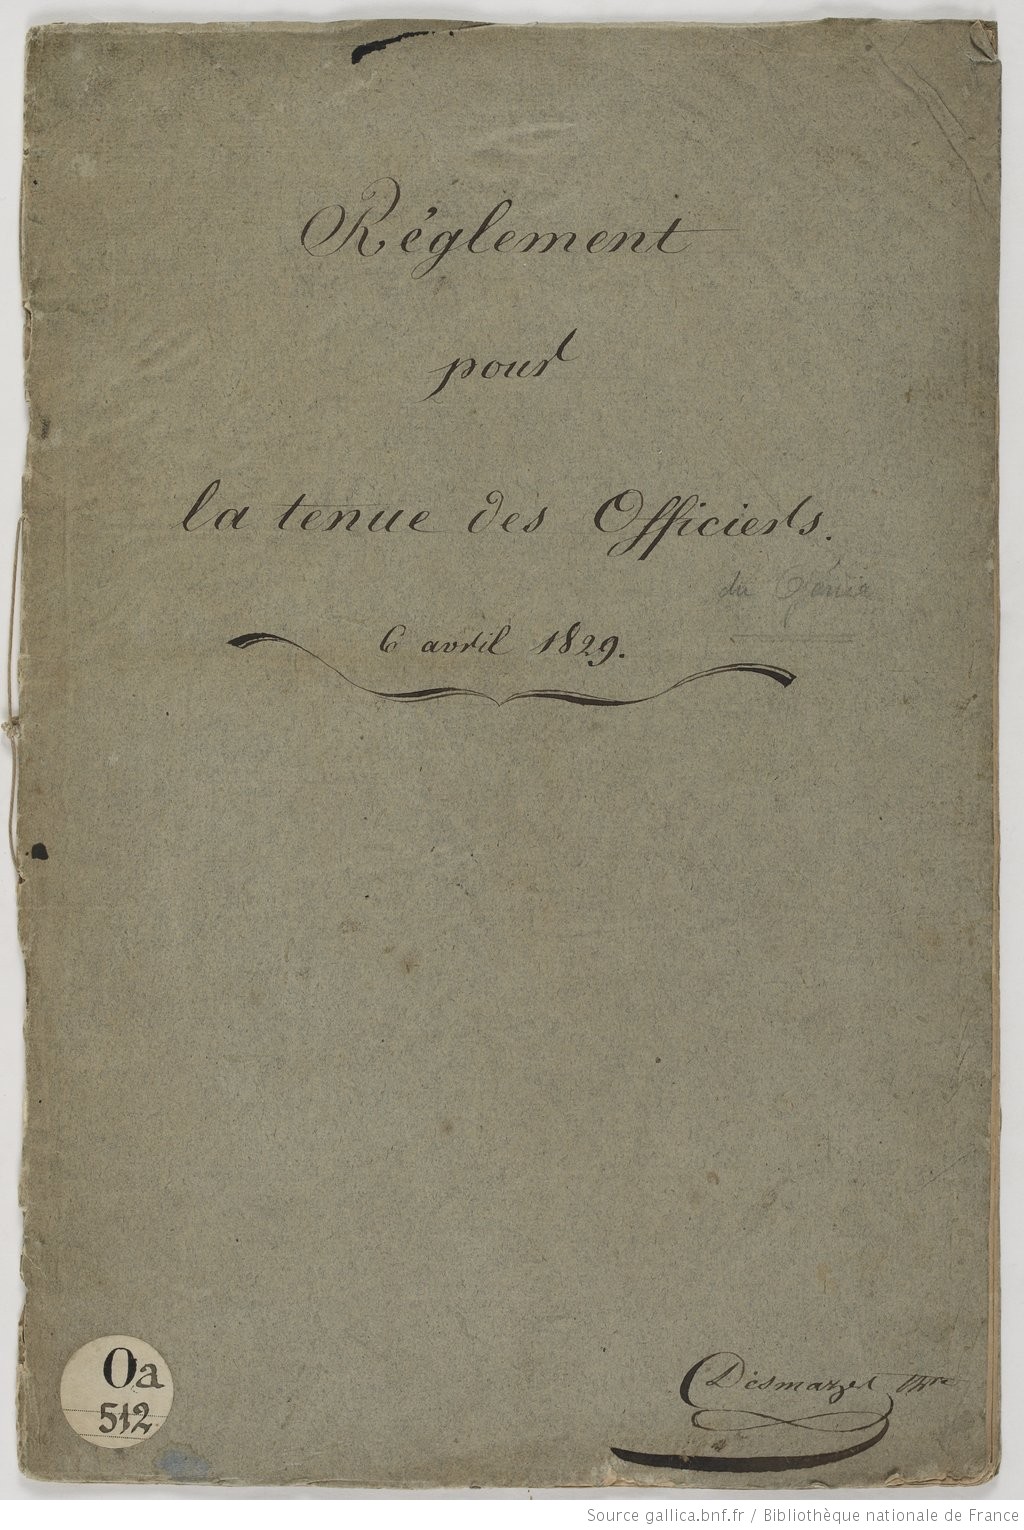 Réglement
pour
la tenue des Officiers.
du Génie
6 avril 1829.
Oa
512
Source gallica.bnf.fr / Bibliothèque nationale de France